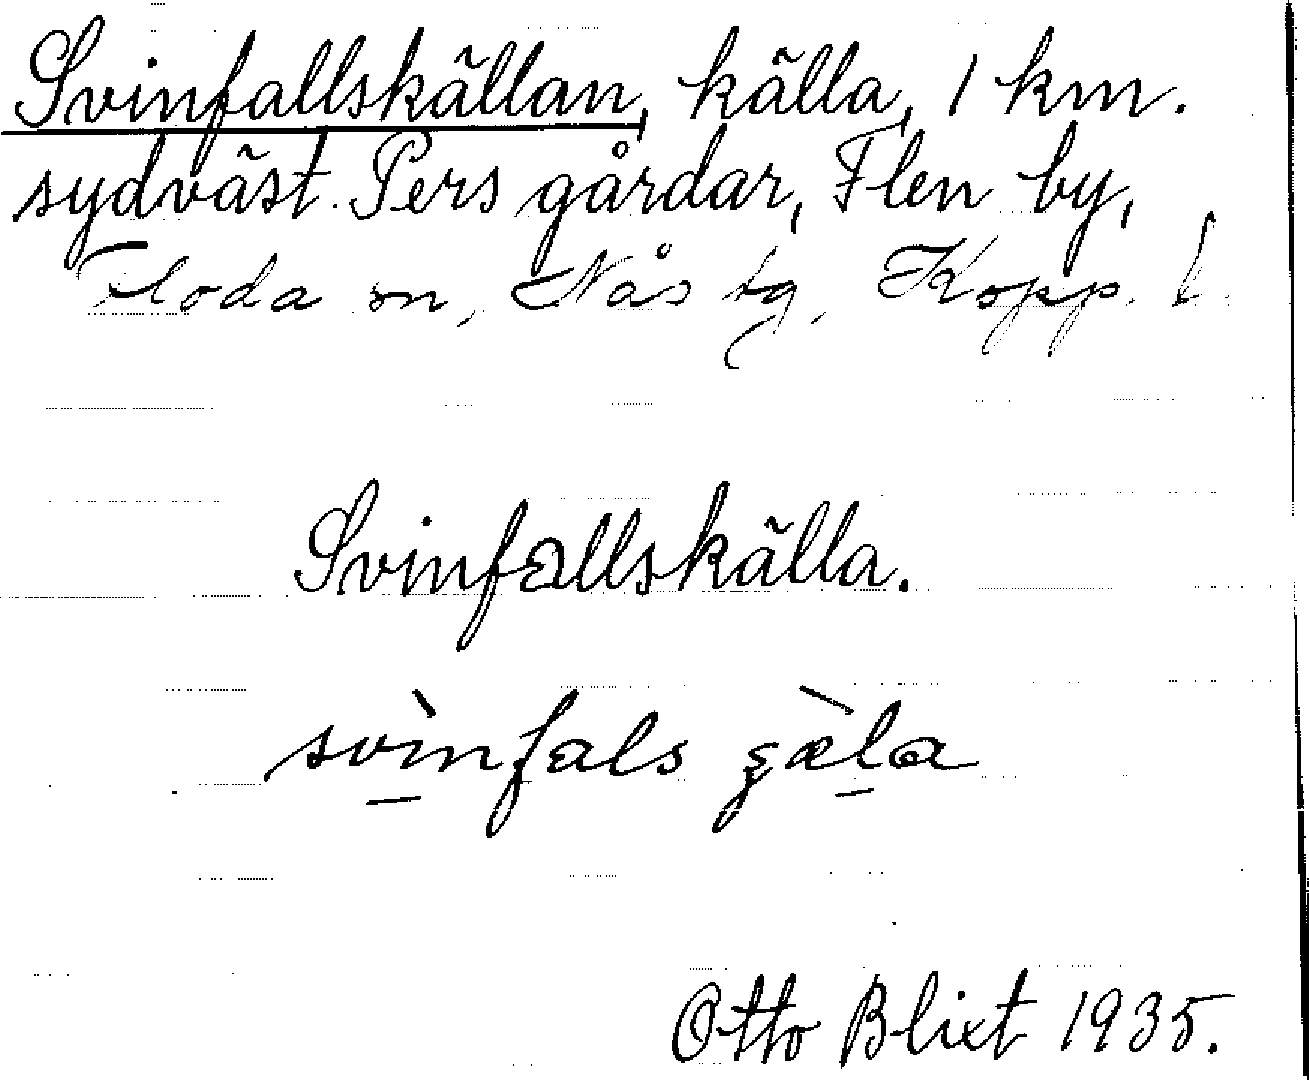 Svinfallskällan, källa, 1 km.
sydväst Pers gårdar, Flen by,
Floda sn, Nås tg, Kopp. l.
Svinfallskälla.
svìnfals ʂæ̀la
Otto Blixt 1935.